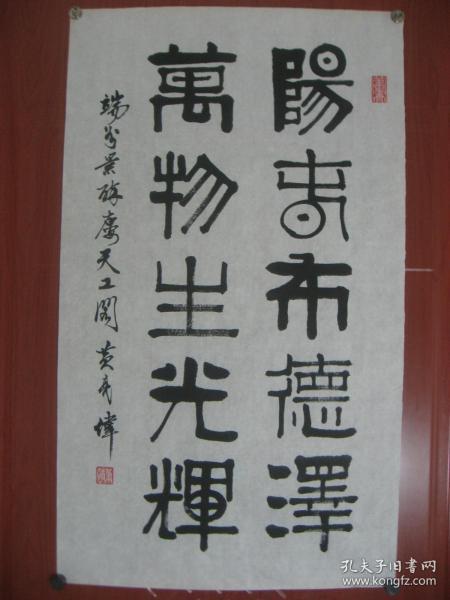 陽春布德澤
萬物生光輝
端岁景 天工閣 黄 煒
孔夫子旧书网
www.kongfz.com